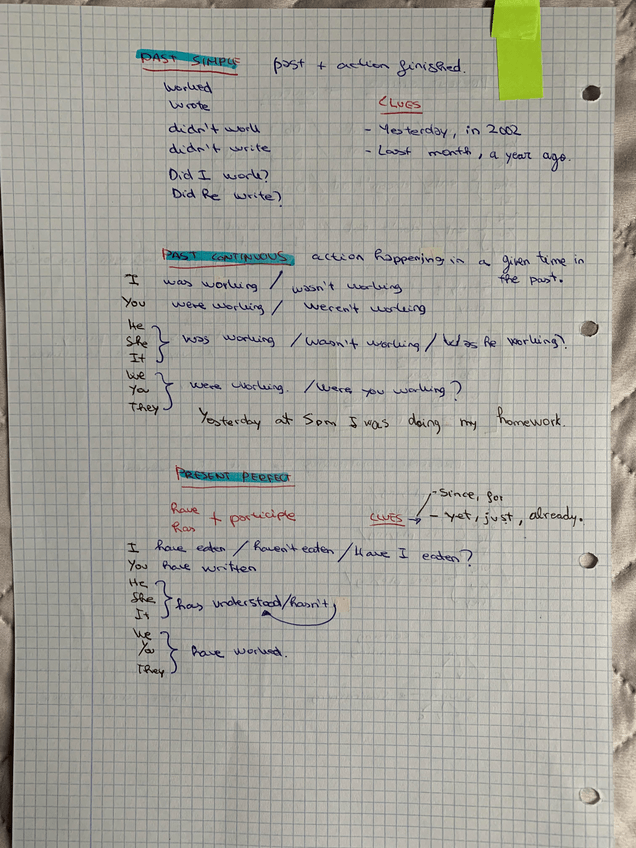 PAST SIMPLE past + action finished.
worked
wrote
CLUES
didn't work - Yesterday, in 2002
didn't write - Last month, a year ago.
Did I work?
Did he write?
PAST CONTINUOUS action happening in a given time in
the past.
I was working / wasn't working
You were working / weren't working
He
She was working / wasn't working / Was he working?
It
We
You were working. / Were you working?
They
Yesterday at 5pm I was doing my homework.
PRESENT PERFECT
- Since, for
have
has + participle CLUES - Yet, just, already.
I have eaten / haven't eaten / Have I eaten?
You have written
He
She has understood/hasn't
It
We
You have worked.
They